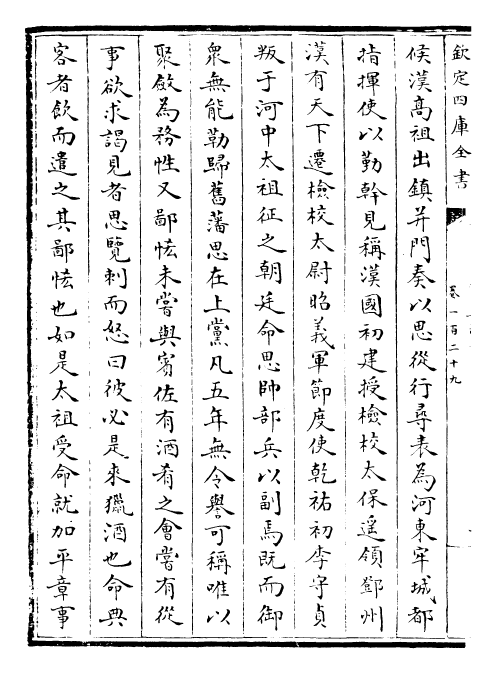 欽定四庫全書
卷一百二十九
候漢高祖出鎮并門奏以思從行尋表為河東牢城都
指揮使以勤幹見稱漢國初建授檢校太保遥領鄧州
漢有天下遷檢校太尉昭義軍節度使乾祐初李守貞
叛于河中太祖征之朝廷命思帥部兵以副焉既而御
衆無能勒歸舊藩思在上黨凡五年無令譽可稱唯以
聚斂為務性又鄙恡未嘗與賓佐有酒肴之會嘗有從
事欲求謁見者思覽刺而怒曰彼必是來獵酒也命典
客者飲而遣之其鄙恡也如是太祖受命就加平章事